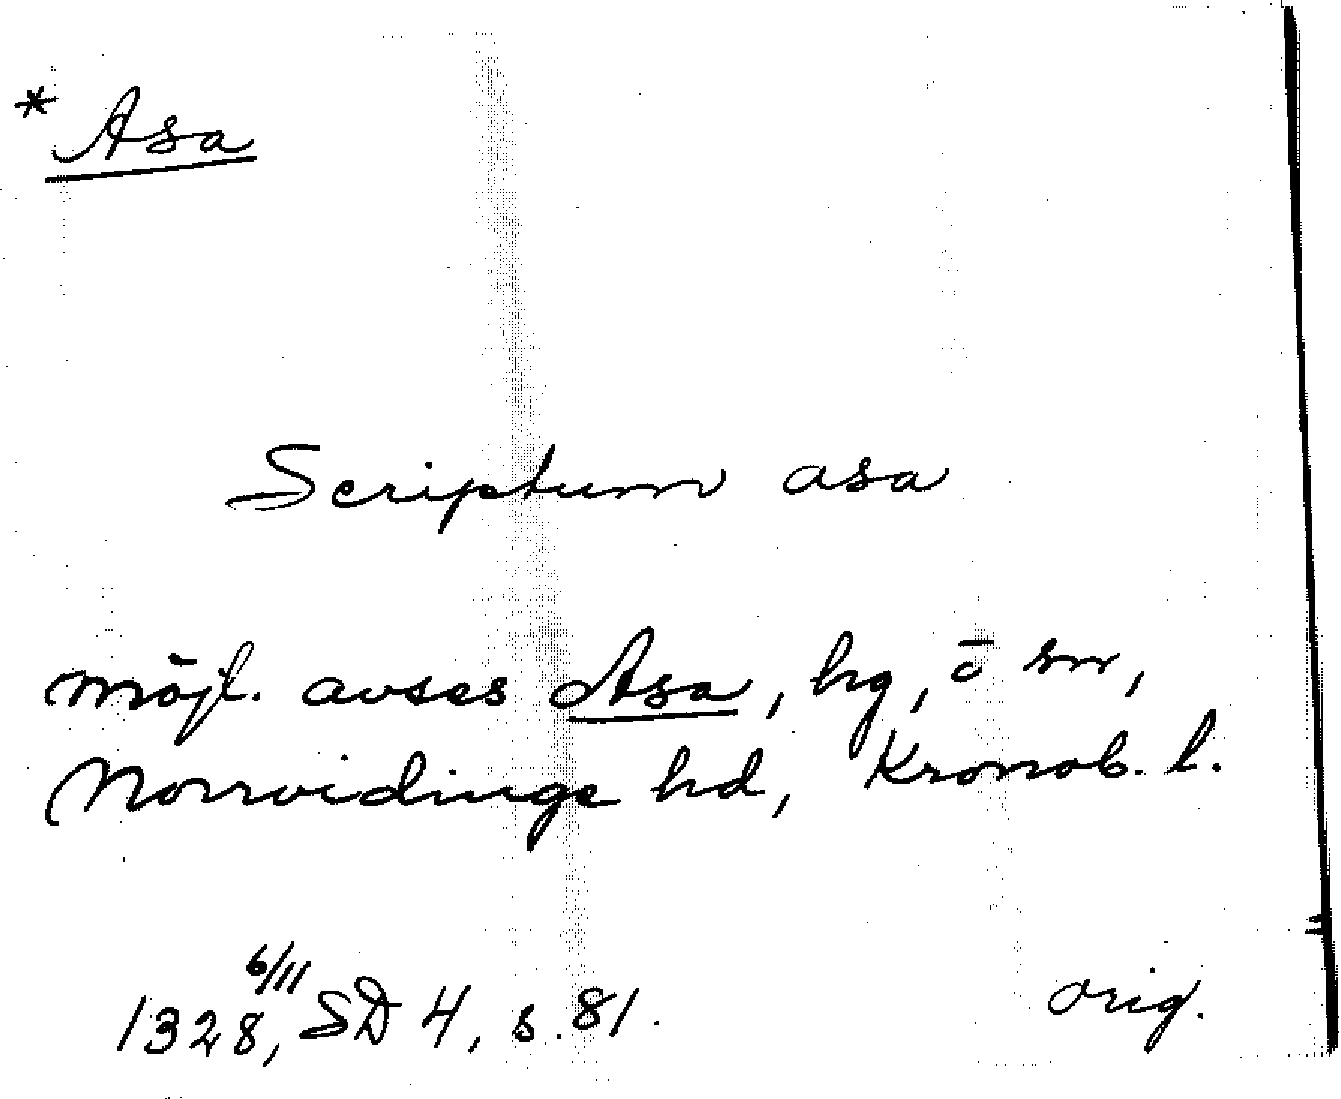 * Asa
Scriptum asa
möjl. avses Asa, hg, o sn,
Norrvidinge hd, Kronob. l.
1328 6/11, SD 4, s. 81.
orig.